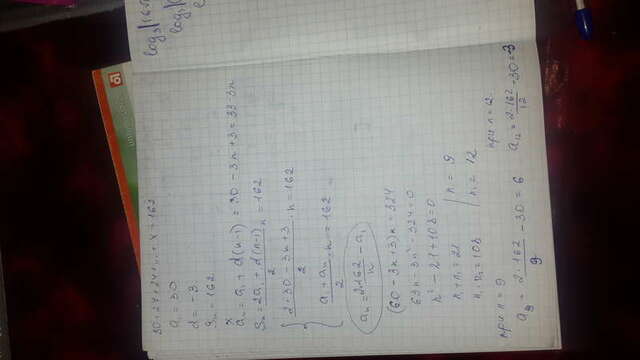 30+27+24+...+x=162
a₁=30
d=-3
Sₙ=162
x
aₙ=a₁+d(n-1)=30-3n+3=33-3n
Sₙ=2a₁+d(n-1)/2 n=162
2·30-3n+3/2·n=162
a+aₙ/2·n=162
aₙ=2·162/n-a₁
(60-3n+3)n=324
63n-3n²-324=0
n²-21+108=0
n+n₁=21 n=9
n·n₂=108 n₁=12
при n=9
a₉=2·162/9-30=6
при n=12
a₁₂=2·162/12-30=-3
log₃|16
log₃|